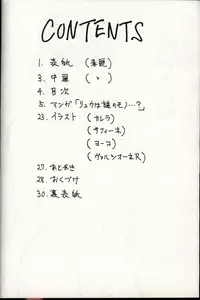 CONTENTS
1. 表紙 (春麗)
3. 中扉 (〃)
4. 目次
5. マンガ「リュウは謎のモノ…?」
23. イラスト (カレラ)
(サフィーネ)
(ヨーコ)
(ヴァルシオーネR)
27. あとがき
28. おくづけ
30. 裏表紙